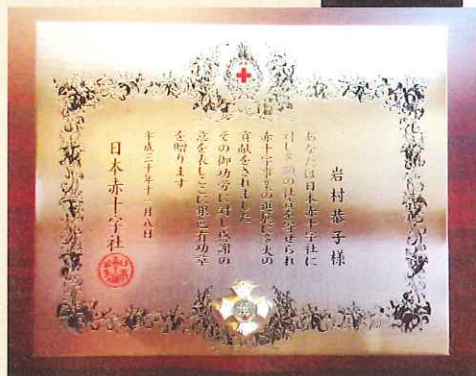 岩村恭子様
あなたは日本赤十字社に
対し多額の社資を寄せられ
赤十字事業の進展に多大の
貢献をされました
その御功労に対し感謝の
意を表しここに銀色有功章
を贈ります
平成三十年十一月八日
日本赤十字社